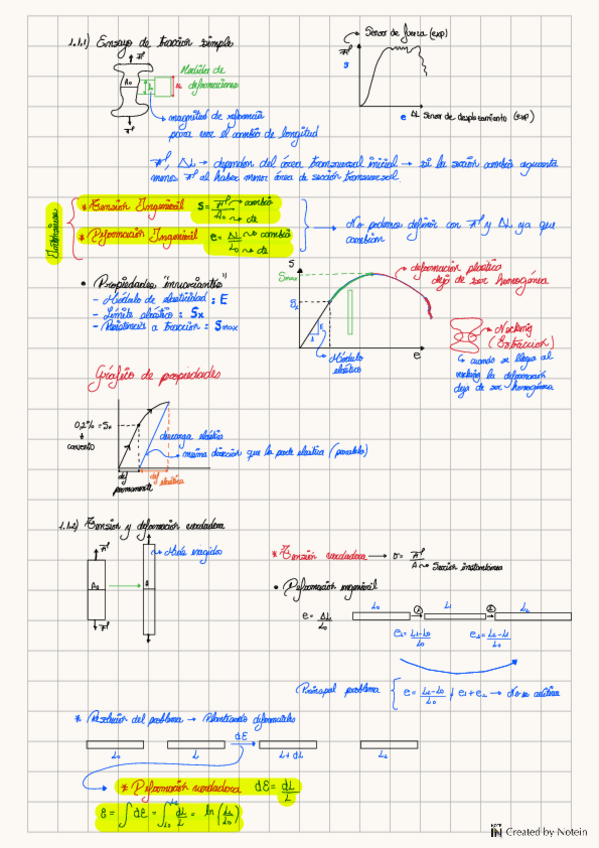 1.1.1) Ensayo de tracción simple
Sensor de fuerza (exp)
F
s
F
Medidor de
deformaciones
A₀
L₀
F
e ΔL Sensor de desplazamiento (exp)
magnitud de referencia
para ver el cambio de longitud
F, ΔL → dependen del área transversal inicial → si la sección cambia aguanta
menos F al haber menor área de sección transversal.
* Tensión Ingenieril s = F/A₀ → cambia → cte
* Deformación Ingenieril e = ΔL/L₀ → cambia → cte
No podemos definir con F y ΔL ya que
cambian
• Propiedades "invariantes"
- Módulo de elasticidad : E
- Límite elástico : Sx
- Resistencia a tracción : Smax
S
Smax
Sx
E
1
e
Módulo
elástico
deformación plástica
deja de ser homogénea
Necking
(Estricción)
cuando se llega al
necking la deformación
deja de ser homogénea
Gráfico de propiedades
0,2% = Sx
convenio
descarga elástica
misma dirección que la parte elástica (paralela)
def
permanente
def
elástica
1.1.2) Tensión y deformación verdadera
F
A₀
F
A
* Tensión verdadera → σ = F/A → Sección instantánea
• Deformación ingenieril
e = ΔL/L₀
L₀
①
L₁
②
L₂
e₁ = L₁-L₀/L₀
e₂ = L₂-L₁/L₁
Principal problema { e = L₂-L₀/L₀ ≠ e₁+e₂ → No es aditiva
* Resolución del problema → Planteando diferenciales
dε
L₀
L
L+dL
L₂
* Deformación verdadera dε = dL/L
ε = ∫dε = ∫ dL/L = ln (L₂/L₀)
Created by Notein